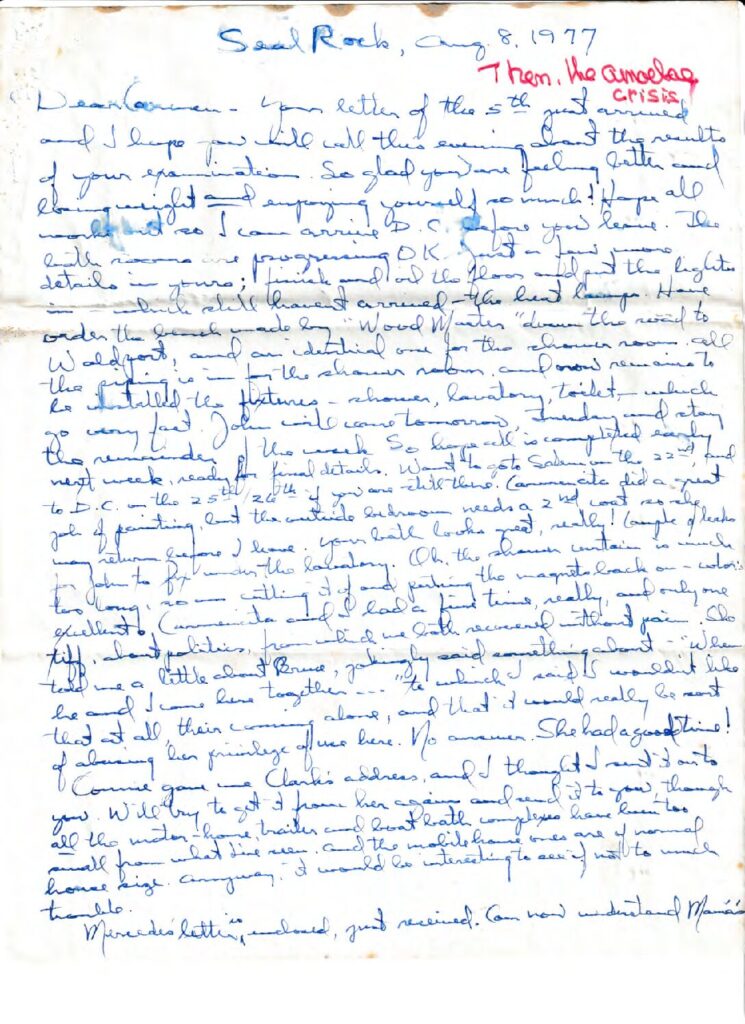 Seal Rock, Aug. 8, 1977
Then, the amoebae
crisis
Dear Carmen - Your letter of the 5th just arrived
and I hope you will call this evening about the results
of your examination. So glad you are feeling better and
losing weight and enjoying yourself so much! Hope all
works out so I can arrive D.C. before you leave. The
bath rooms are progressing OK. Just a few more
details in yours; finish and oil the floor and put the lights
in - which still haven't arrived - the heat lamps. Have
order the bench made by "Wood Master" down the road to
Waldport, and an identical one for the shower room. All
the piping is in for the shower room, and now remains to
be installed the fixtures - shower, lavatory, toilet, - which
go very fast. John will come tomorrow, Tuesday and stay
the remainder of the week. So hope all is completed early
next week, ready for final details. Want to go to Salem on the 22nd, and
to D.C. on the 25th/26th if you are still there. Carmencita did a great
job of painting, but the outside bedroom needs a 2nd coat so she
may return before I leave. Your bath looks great, really! Couple of leaks
for John to fix under the lavatory. Oh, the shower curtain is much
too long, so am cutting it off and putting the magnets back on - color is
excellent. Carmencita and I had a fine time, really, and only one
tiff, about politics, from which we both recovered without pain. She
told me a little about Bruce, jokingly said something about - "When
he and I come here together ... " to which I said I wouldn't like
that at all, their coming alone, and that it would really be sort
of abusing her privilege of use here. No answer. She had a good time!
Connie gave me Clark's address, and I thought I sent it on to
you. Will try to get it from her again and send it to you, though
all the motor-home, trailer and boat bath complexes have been too
small from what I've seen. And the mobile home ones are of normal
house size. Anyway, it would be interesting to see if not to much
trouble.
Mercedes letter is enclosed, just received. Can now understand Mamá's